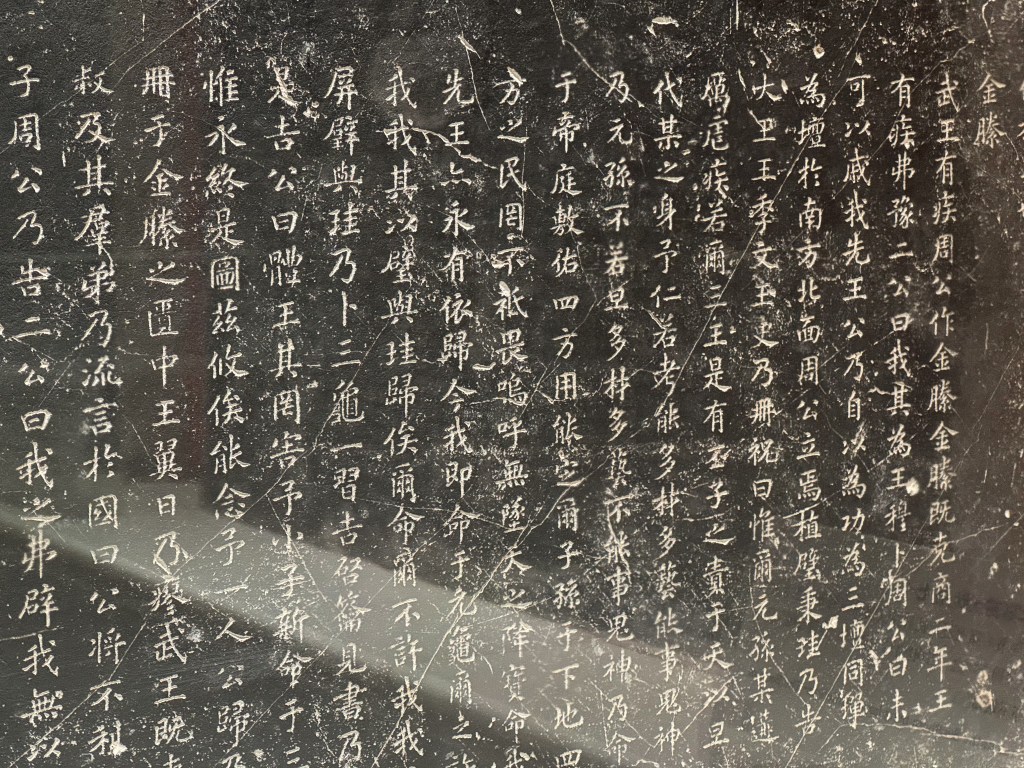 金縢
武王有疾周公作金縢金縢既克商二年王
有疾弗豫二公曰我其為王穆卜周公曰未
可以戚我先王公乃自以為功為三壇同墠
為壇於南方北面周公立焉植璧秉珪乃告
大王王季文王史乃冊祝曰惟爾元孫某遘
厲虐疾若爾三王是有丕子之責于天以旦
代某之身予仁若考能多材多藝能事鬼神
乃元孫不若旦多材多藝不能事鬼神乃命
于帝庭敷佑四方用能定爾子孫于下地四
方之民罔不祗畏嗚呼無墜天之降寶命我
先王亦永有依歸今我即命于元龜爾之許
我我其以璧與珪歸俟爾命爾不許我我
屏璧與珪乃卜三龜一習吉啓籥見書乃
是吉公曰體王其罔害予小子新命于三
惟永終是圖茲攸俟能念予一人公歸乃
冊于金縢之匱中王翼日乃瘳武王既
叔及其羣弟乃流言於國曰公將不利
子周公乃告二公曰我之弗辟我無以